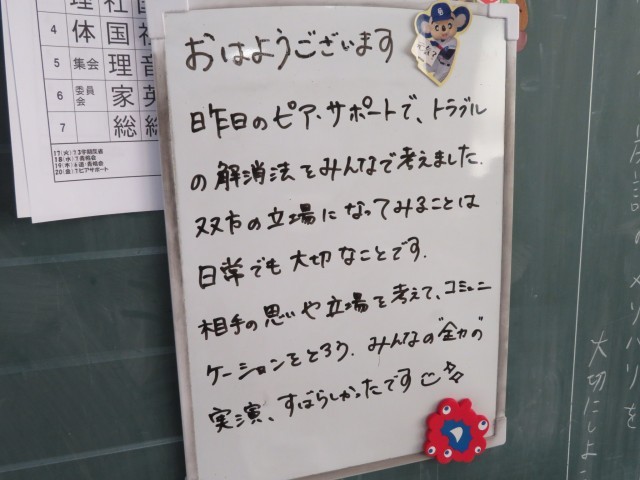 理 社 国
4 体 国 社
5 集会 理 音
6 委員会 家 英
7 総 総
17(火)
18(水)
19(木)
20(金)1ピアサポート
おはようございます
昨日のピア・サポートで、トラブル
の解消法をみんなで考えました.
双方の立場になってみることは
日常でも大切なことです.
相手の思いや立場を考えて、コミュニ
ケーションをとろう. みんなの"全力"の
実演、すばらしかったです
メリハリを
大切にしよ